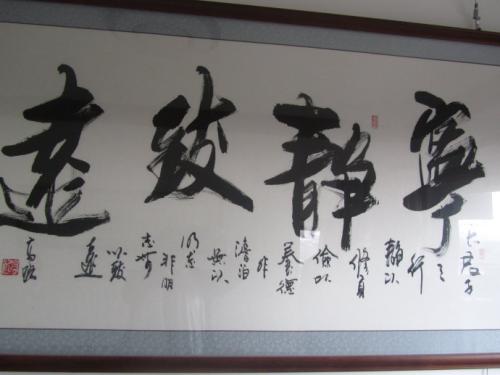 寧靜致遠
夫君子
之行
靜以
修身
儉以
養德
非
澹泊
無以
明志非明
志無
以致
遠